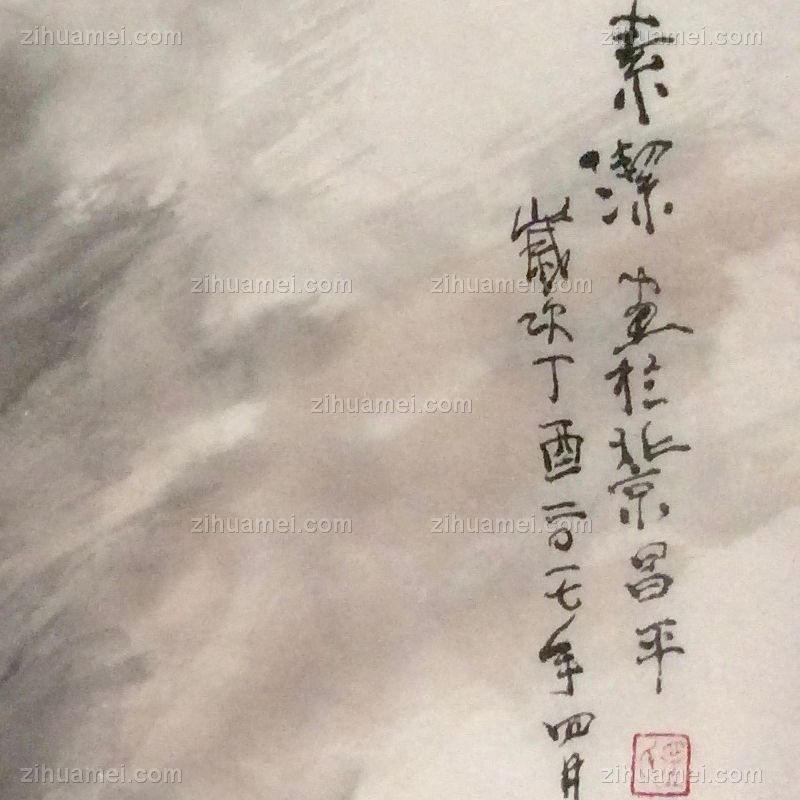 素潔畫於北京昌平
歲次丁酉二〇一七年四月
zihuamei.com
zihuamei.com
zihuamei.com
zihuamei.com
zihuamei.com
zihuamei.com
zihuamei.com
zihuamei.com
zihuamei.com
zihuamei.com
zihuamei.com
zihuamei.com
zihuamei.com